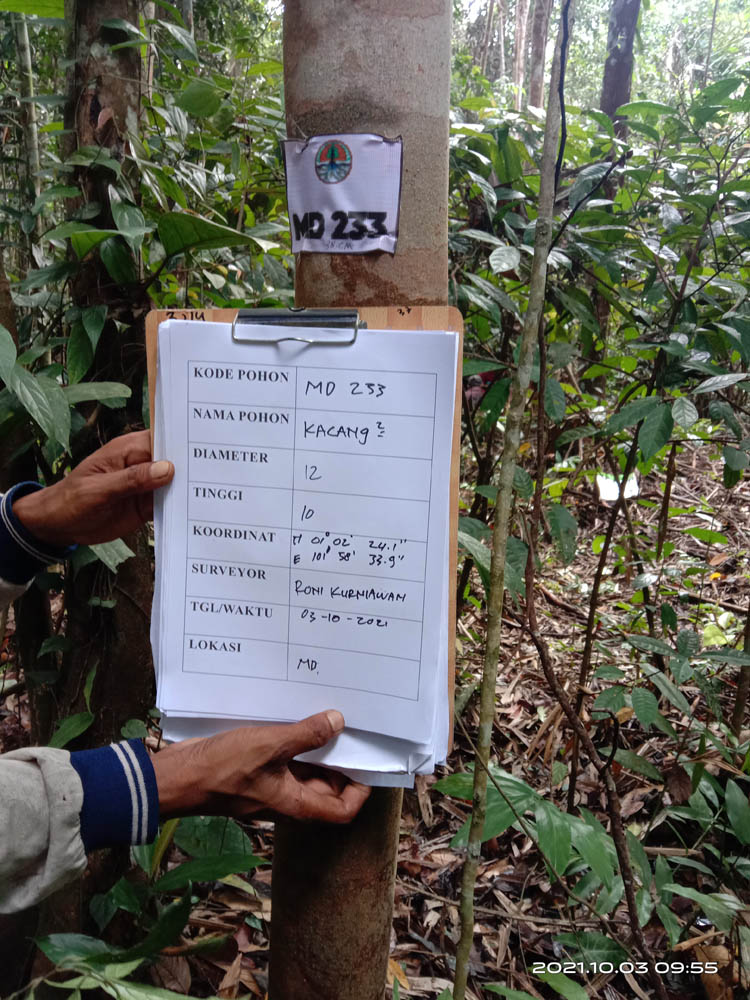 MD 233
KODE POHON MD 233
NAMA POHON KACANG²
DIAMETER 12
TINGGI 10
KOORDINAT 01° 02' 24.1"
E 101° 58' 33.9"
SURVEYOR RONI KURNIAWAN
TGL/WAKTU 03-10-2021
LOKASI MD.
2021.10.03 09:55